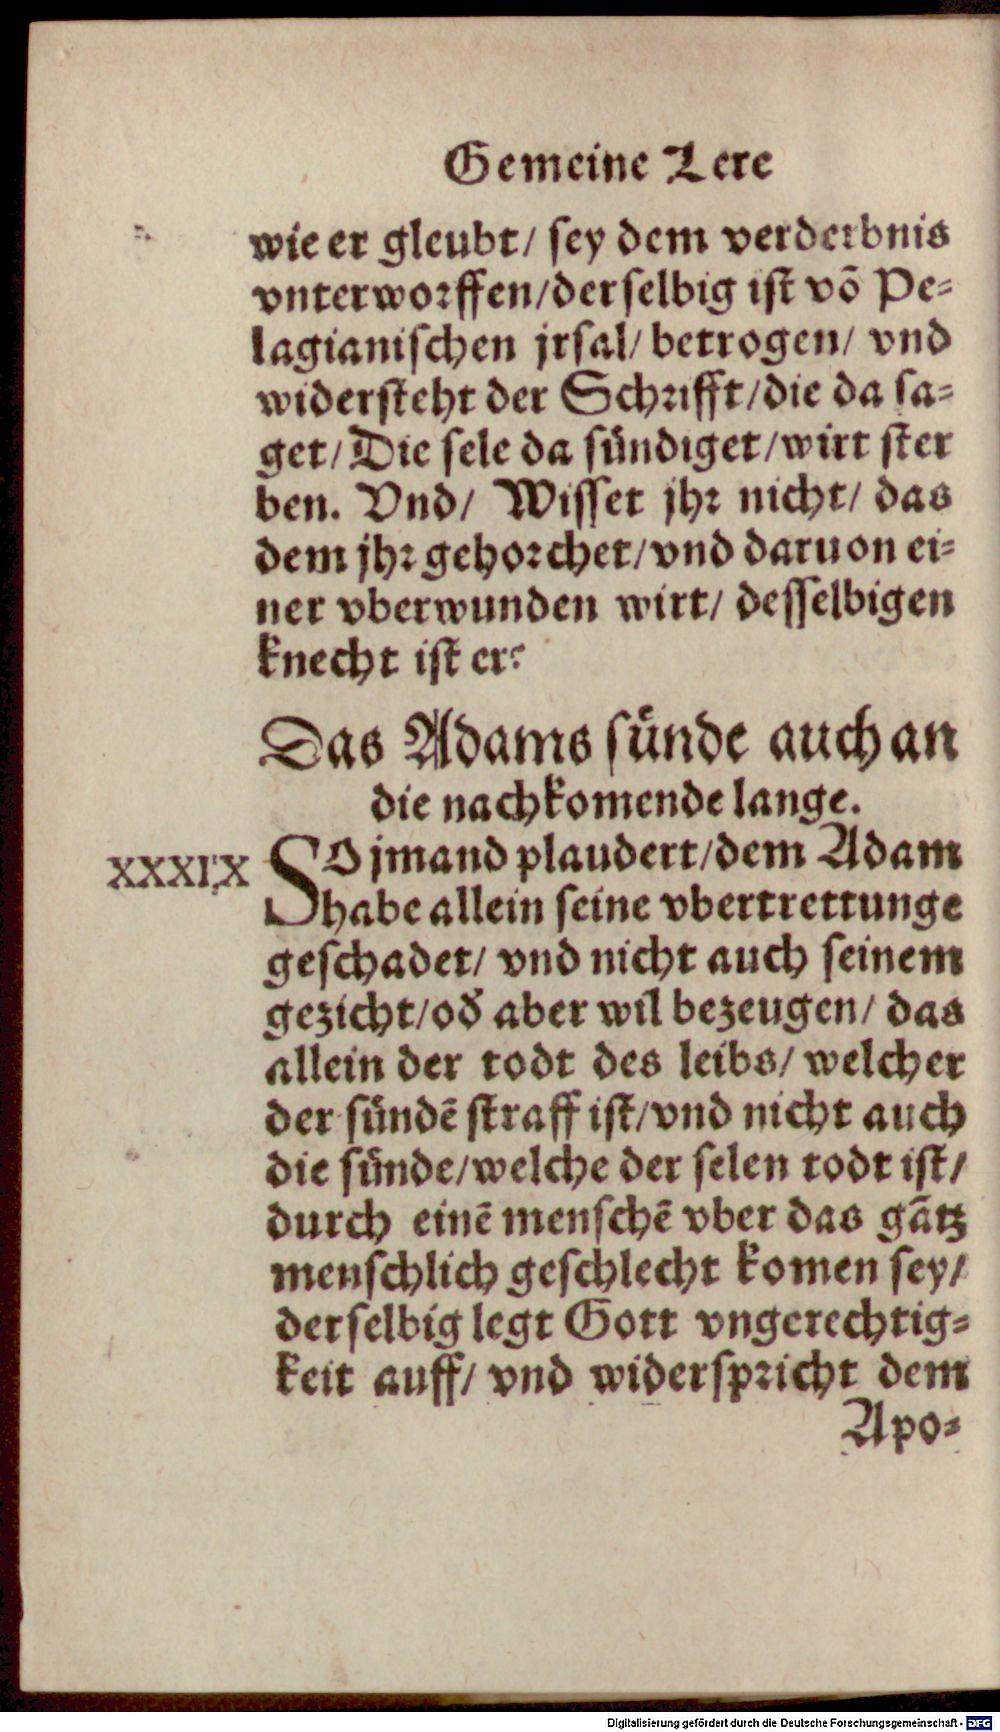 Gemeine Lere
wie er gleubt/ sey dem verderbnis
vnterworffen/derselbig ist võ Pe=
lagianischen jrsal/ betrogen/ vnd
widersteht der Schrifft/die da sa=
get/Die sele da sündiget/wirt ster
ben. Vnd/ Wisset jhr nicht/ das
dem jhr gehorchet/vnd daruon ei=
ner vberwunden wirt/ desselbigen
knecht ist er?
Das Adams sünde auch an
die nachkomende lange.
XXXIX
SO jmand plaudert/dem Adam
habe allein seine vbertrettunge
geschadet/ vnd nicht auch seinem
gezicht/od̕ aber wil bezeugen/ das
allein der todt des leibs/ welcher
der sündẽ straff ist/vnd nicht auch
die sünde/welche der selen todt ist/
durch einẽ menschẽ vber das gãtz
menschlich geschlecht komen sey/
derselbig legt Gott vngerechtig=
keit auff/ vnd widerspricht dem
Apo=
Digitalisierung gefördert durch die Deutsche Forschungsgemeinschaft - DFG